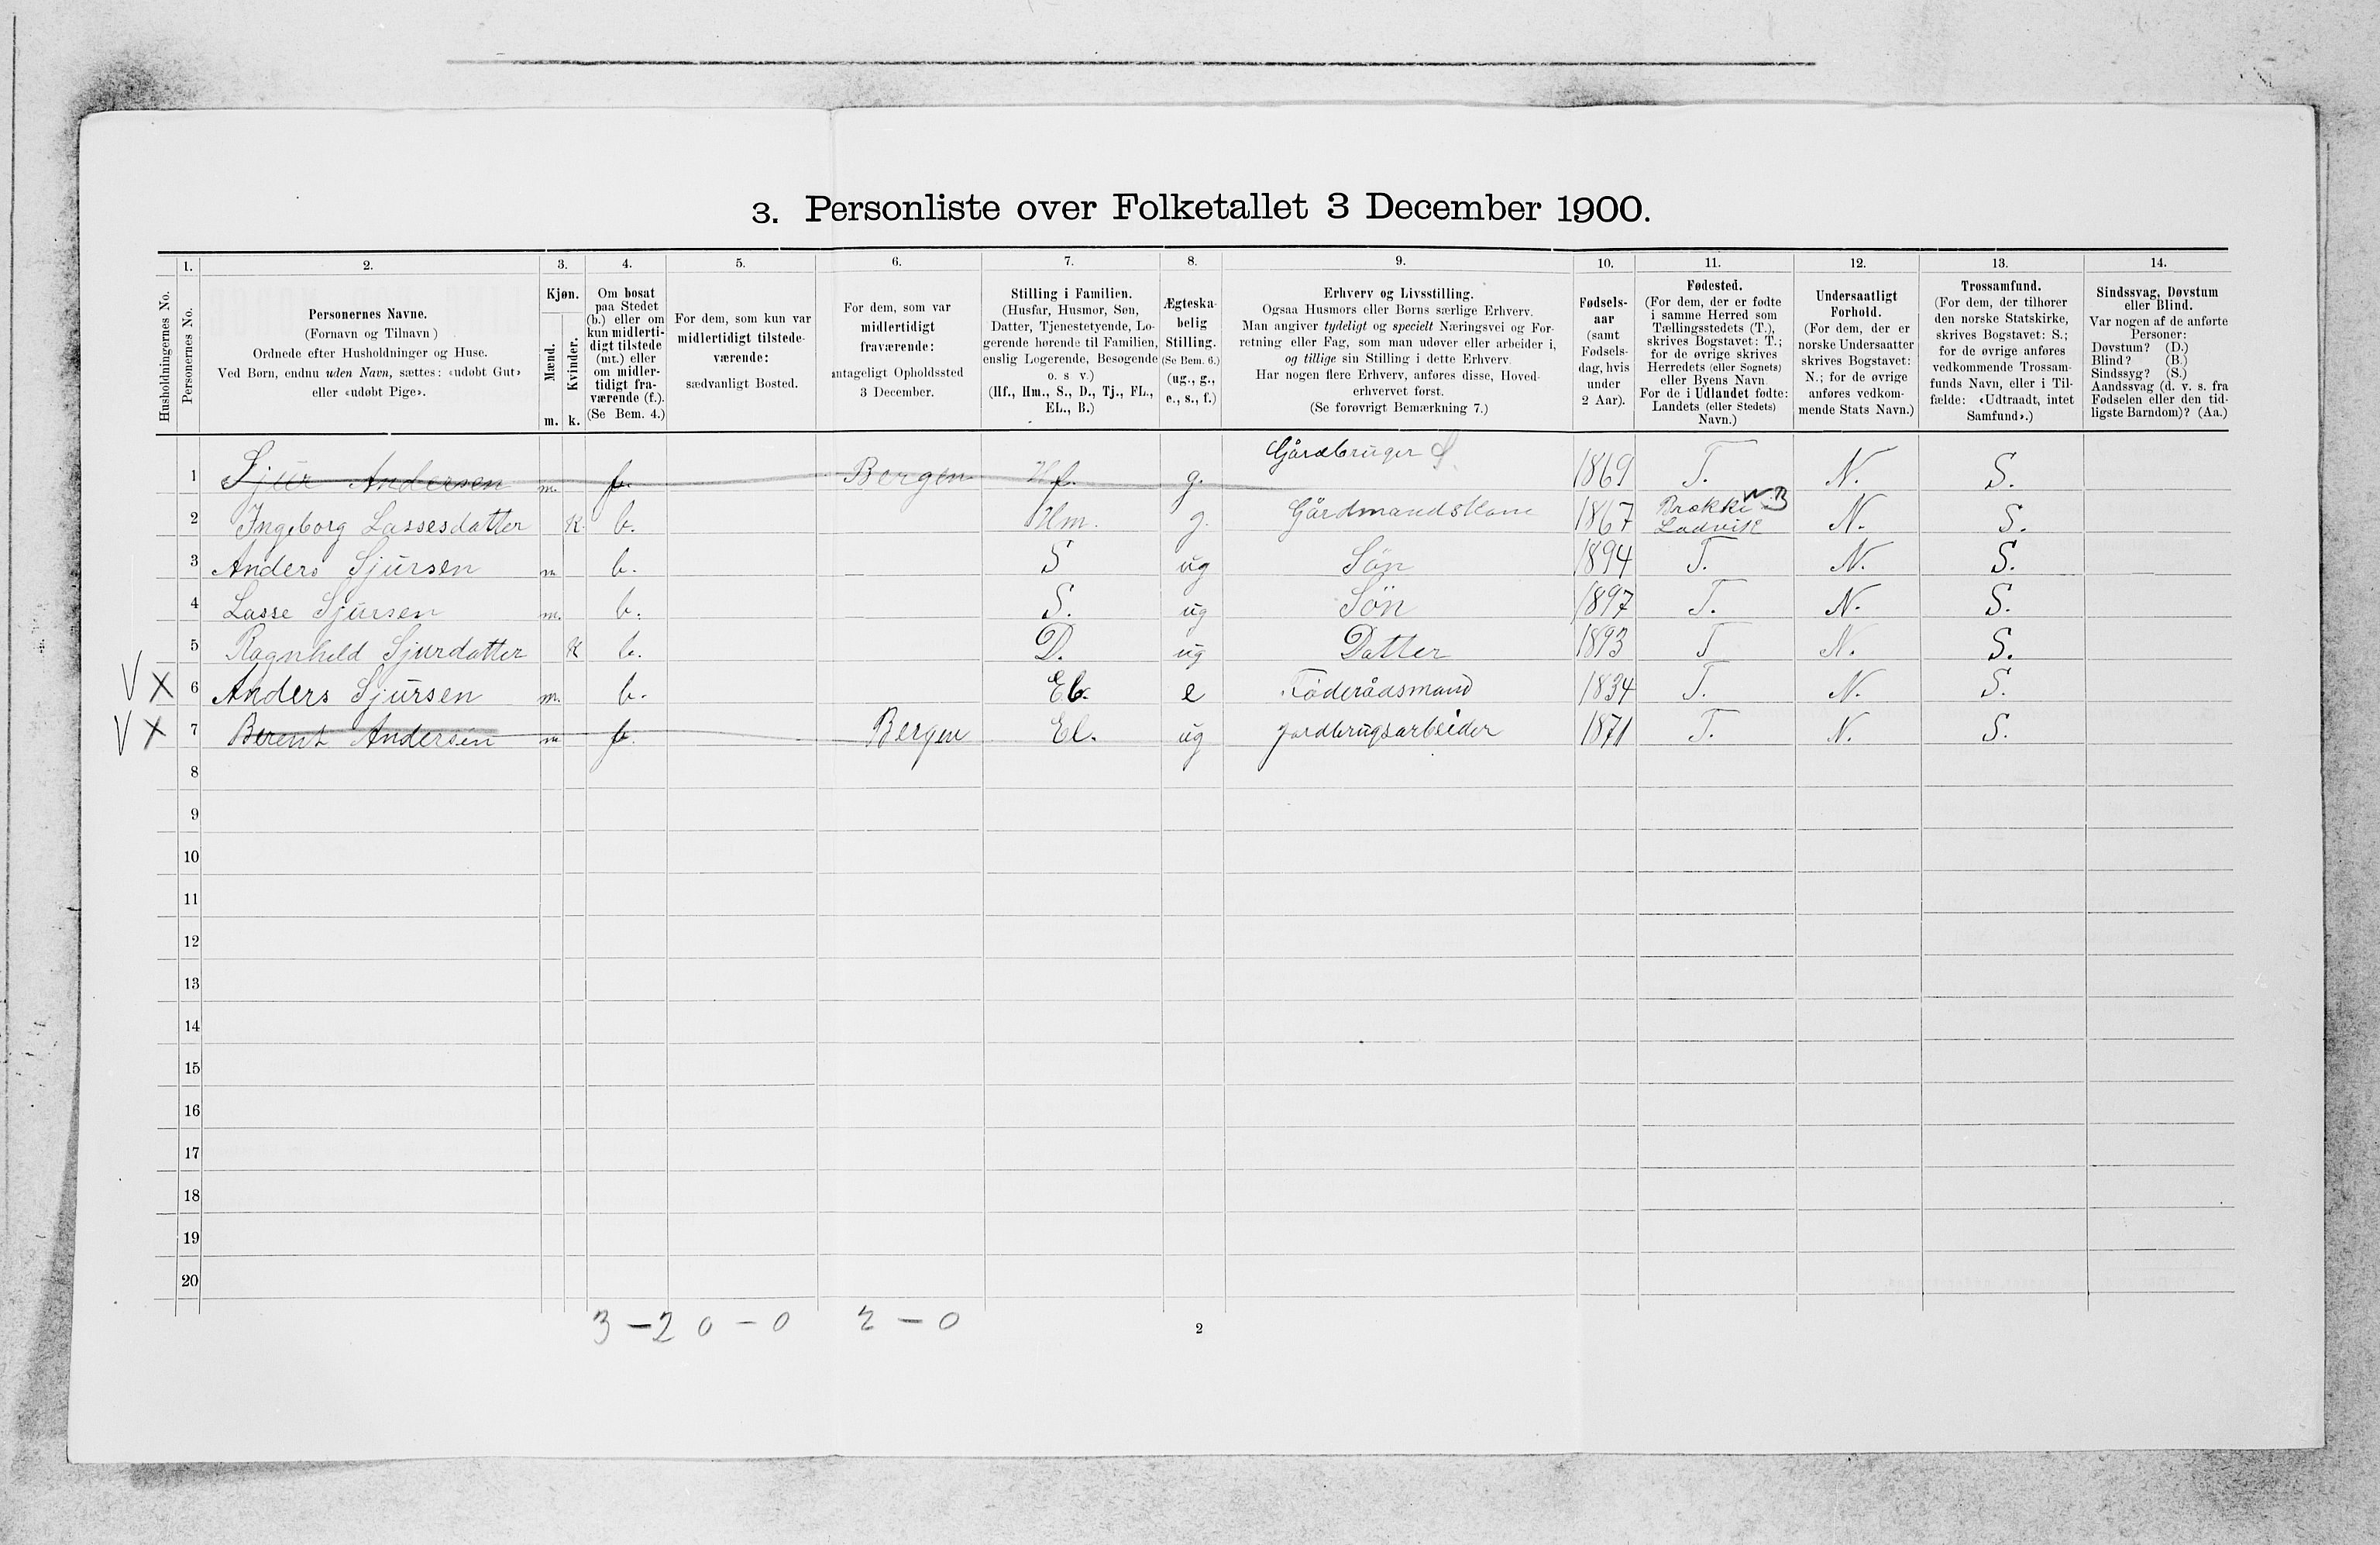 3. Personliste over Folketallet 3 December 1900.
1. 2. 3. 4. 5. 6. 7. 8. 9. 10. 11. 12. 13. 14.
Husholdningernes No.
Personernes No.
Personernes Navne.
(Fornavn og Tilnavn)
Ordnede efter Husholdninger og Huse.
Ved Børn, endnu uden Navn, sættes: «udøbt Gut»
eller «udøbt Pige».
Kjøn.
Mænd.
Kvinder.
m. k.
Om bosat
paa Stedet
(b.) eller om
kun midlerti-
digt tilstede
(mt.) eller
om midler-
tidigt fra-
værende (f.).
(Se Bem. 4.)
For dem, som kun var
midlertidigt tilstede-
værende:
sædvanligt Bosted.
For dem, som var
midlertidigt
fraværende:
antageligt Opholdssted
3 December.
Stilling i Familien.
(Husfar, Husmor, Søn,
Datter, Tjenestetyende, Lo-
gerende hørende til Familien,
enslig Logerende, Besøgende
o. s. v.)
(Hf., Hm., S., D., Tj., FL.,
EL., B.)
Ægteska-
belig
Stilling.
(Se Bem. 6.)
(ug., g.,
e., s., f.)
Erhverv og Livsstilling.
Ogsaa Husmors eller Børns særlige Erhverv.
Man angiver tydeligt og specielt Næringsvei og For-
retning eller Fag, som man udøver eller arbeider i,
og tillige sin Stilling i dette Erhverv.
Har nogen flere Erhverv, anføres disse, Hoved-
erhvervet først.
(Se forøvrigt Bemærkning 7.)
Fødsels-
aar
(samt
Fødsels-
dag, hvis
under
2 Aar).
Fødested.
(For dem, der er fødte
i samme Herred som
Tællingsstedets (T.),
skrives Bogstavet: T.;
for de øvrige skrives
Herredets (eller Sognets)
eller Byens Navn.
For de i Udlandet fødte:
Landets (eller Stedets)
Navn.)
Undersaatligt
Forhold.
(For dem, der er
norske Undersaatter
skrives Bogstavet:
N.; for de øvrige
anføres vedkom-
mende Stats Navn.)
Trossamfund.
(For dem, der tilhører
den norske Statskirke,
skrives Bogstavet: S.;
for de øvrige anføres
vedkommende Trossam-
funds Navn, eller i Til-
fælde: «Udtraadt, intet
Samfund».)
Sindssvag, Døvstum
eller Blind.
Var nogen af de anførte
Personer:
Døvstum? (D.)
Blind? (B.)
Sindssyg? (S.)
Aandssvag (d. v. s. fra
Fødselen eller den tid-
ligste Barndom)? (Aa.)
1 Sjur Andersen m. f. Bergen Hf. g. Gårdbruger S. 1869 T. N. S.
2 Ingeborg Lassesdatter K. b. Hm. g. Gårdmandskone 1867 Brekke Ladvik N. S.
3 Anders Sjursen m b. S ug Søn 1894 T. N. S.
4 Lasse Sjursen m. b. S. ug Søn 1897 T. N. S.
5 Ragnhild Sjurdatter K b. D. ug Datter 1893 T N. S.
V X 6 Anders Sjursen m. b. El. e Föderådsmand 1834 T. N. S.
V X 7 Berent Andersen m f. Bergen El. ug jordbrugsarbeider 1871 T. N. S.
8
9
10
11
12
13
14
15
16
17
18
19
20
3 - 2 0 - 0 2 - 0
2